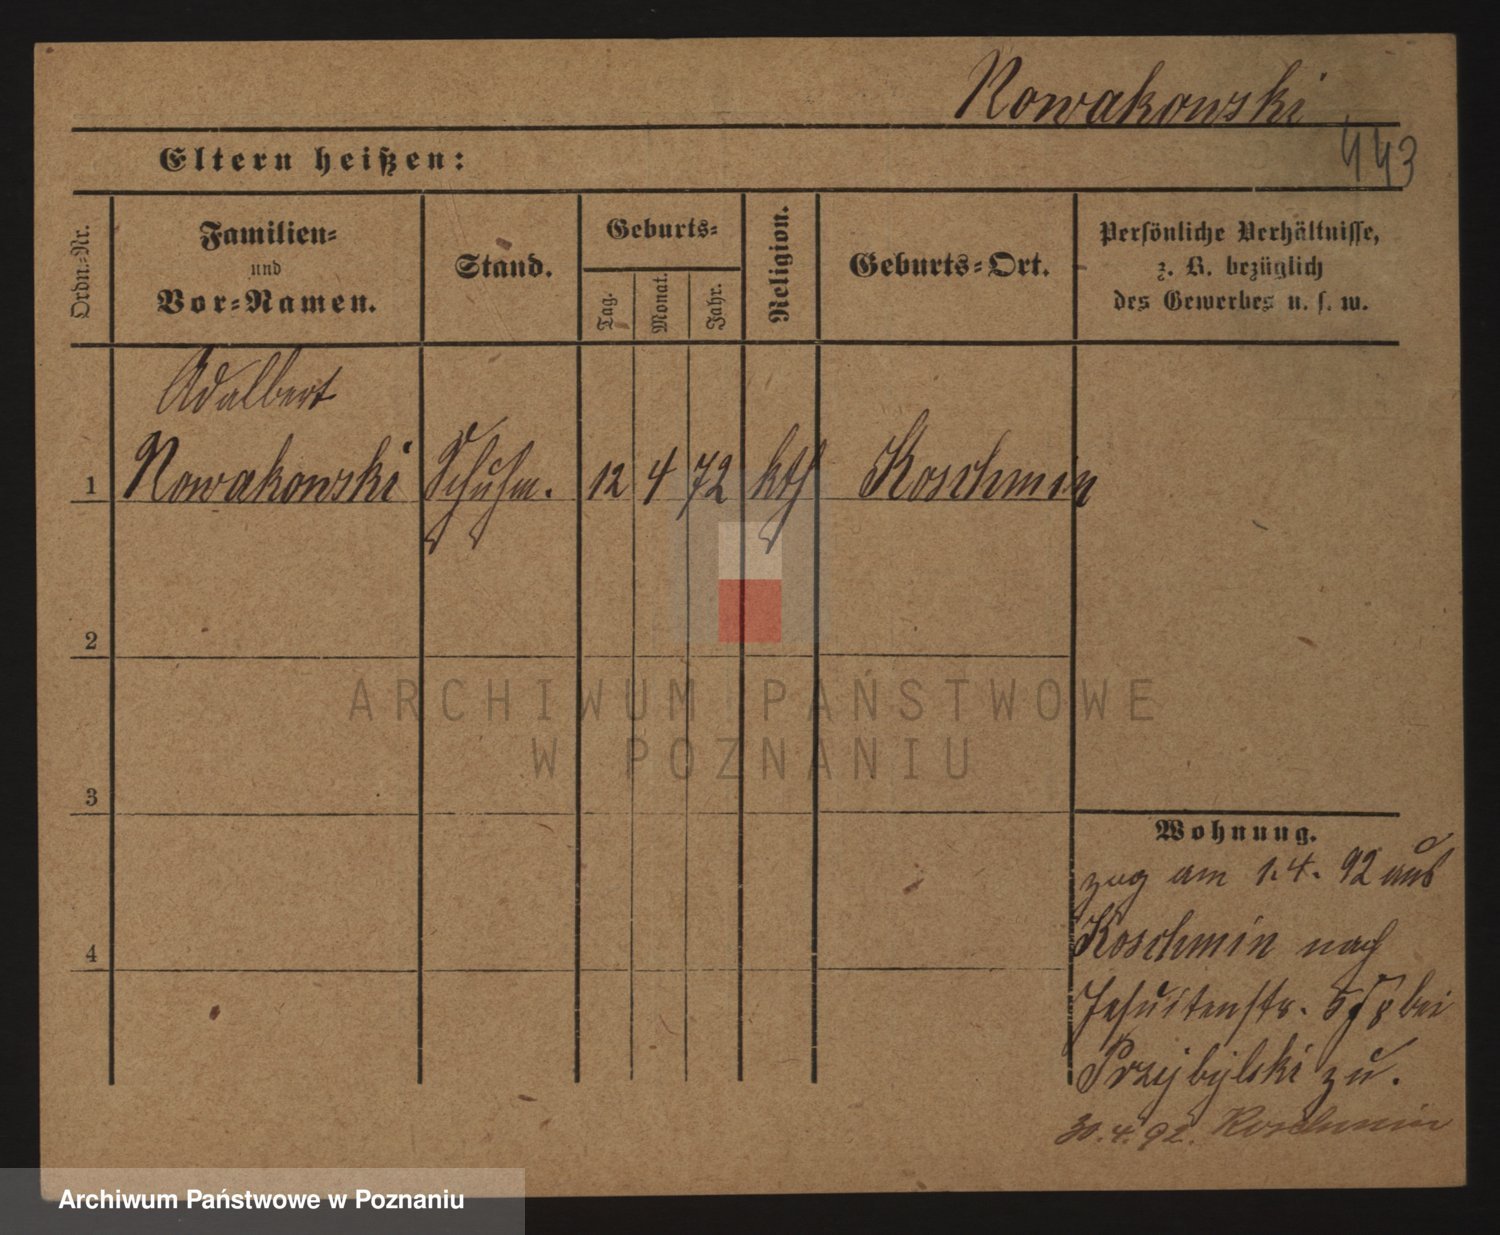 Nowakowski
443
Eltern heißen:
Ordn.-Nr.
Familien-
und
Vor-Namen.
Stand.
Geburts-
Tag.
Monat.
Jahr.
Religion.
Geburts-Ort.
Persönliche Verhältnisse,
z. B. bezüglich
des Gewerbes u. s. w.
Adalbert
1 Nowakowski Schuhm. 12 4 72 kth Koschmin
2
3
4
ARCHIWUM PAŃSTWOWE
W POZNANIU
Wohnung.
zog am 1.4.92 aus
Koschmin nach
Jesuitenstr. bei
Przybylski zu.
30.4.92. Koschmin
Archiwum Państwowe w Poznaniu